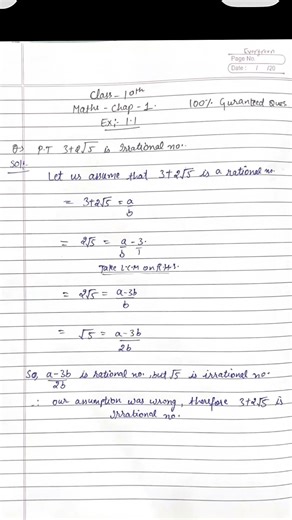 Evergreen
Page No.
Date: / /20
Class - 10th
Maths - Chap - 1.
100% Guranteed Ques
Ex;- 1.1
Q) P.T 3+2√5 is Irrational no.
Soln.
Let us assume that 3+2√5 is a rational no.
= 3+2√5 = a/b
= 2√5 = a/b - 3/1
Take L.C.M on R.H.S.
= 2√5 = a-3b/b
= √5 = a-3b/2b
So, a-3b/2b is rational no. but √5 is irrational no.
∴ our assumption was wrong, therefore 3+2√5 is
irrational no.